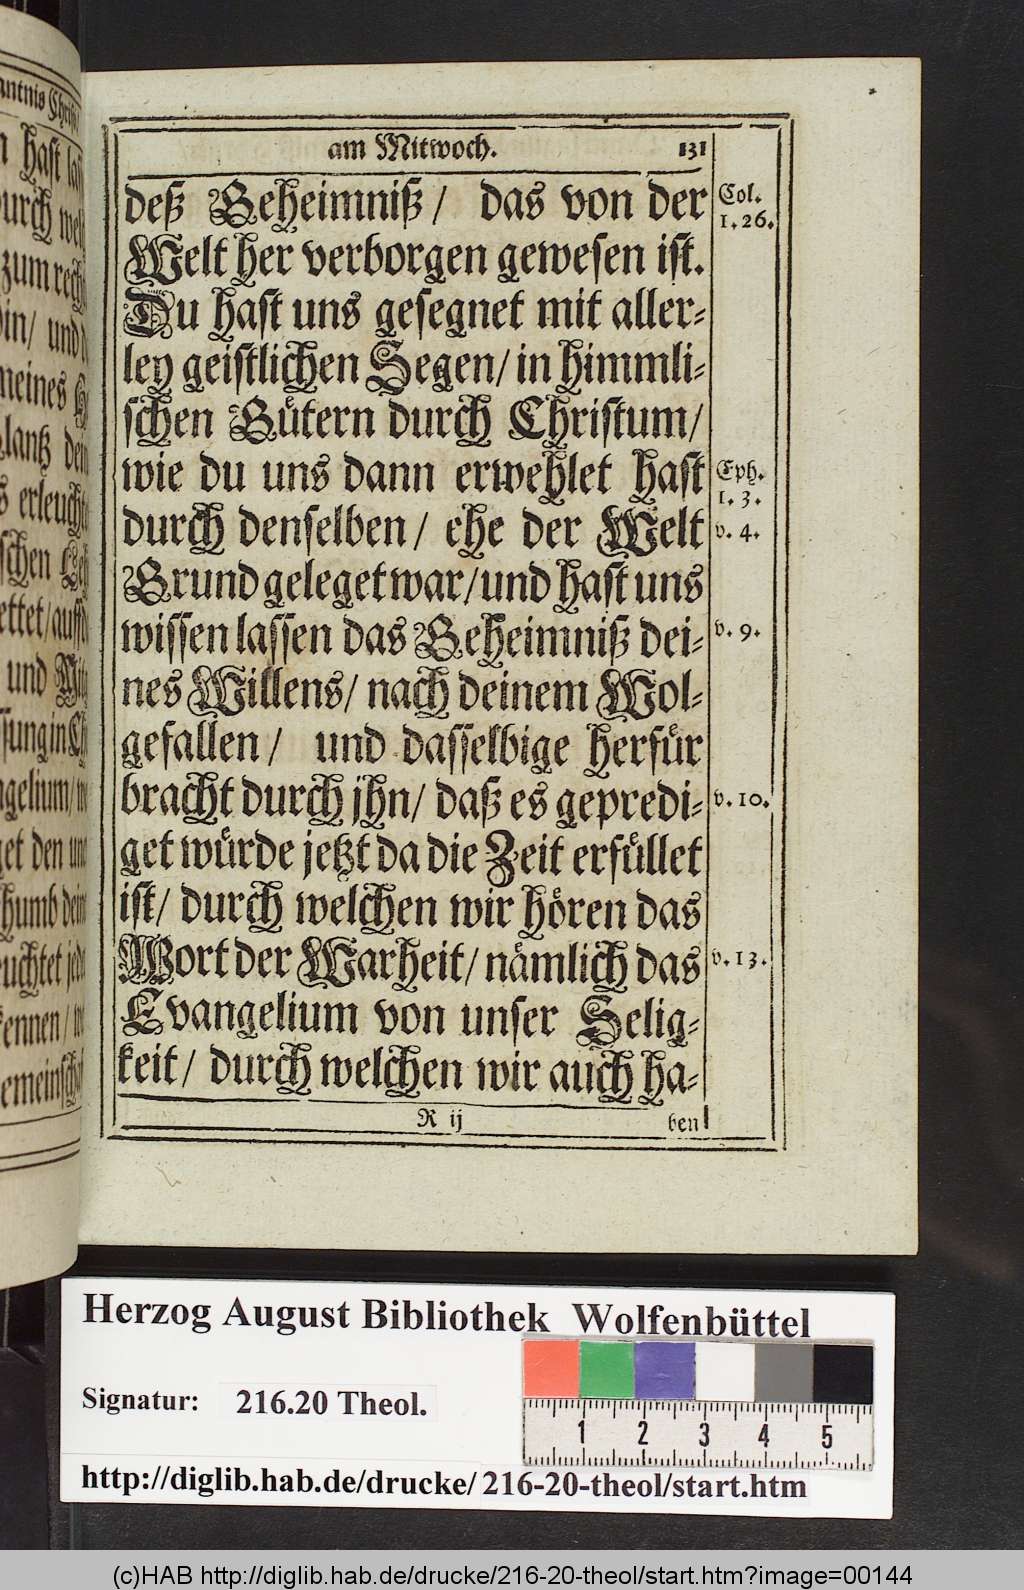 am Mitwoch. 131
deß Geheimniß / das von der
Welt her verborgen gewesen ist.
Du hast uns gesegnet mit aller-
ley geistlichen Segen / in himmli-
schen Gütern durch Christum /
wie du uns dann erwehlet hast
durch denselben / ehe der Welt
Grund geleget war / und hast uns
wissen lassen das Geheimniß dei-
nes Willens / nach deinem Wol-
gefallen / und dasselbige herfür
bracht durch jhn / daß es gepredi-
get würde jetzt da die Zeit erfüllet
ist / durch welchen wir hören das
Wort der Warheit / nämlich das
Evangelium von unser Selig-
keit / durch welchen wir auch ha-
R ij ben
Col.
1. 26.
Eph.
1. 3.
v. 4.
v. 9.
v. 10.
v. 13.
hast
durch
zum
und
meines
erleucht
schen
und
den
kennen /
Herzog August Bibliothek Wolfenbüttel
Signatur: 216.20 Theol.
1 2 3 4 5
http://diglib.hab.de/drucke/216-20-theol/start.htm
(c)HAB http://diglib.hab.de/drucke/216-20-theol/start.htm?image=00144